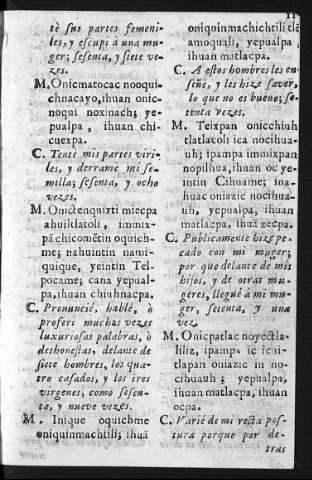 11
tè sus partes femeni-
les, y escupi à una mu-
ger; sesenta, y siete ve-
zes.
M. Onicmatocac nooqui-
chnacayo, ihuan onic-
noqui noxinach; ye-
pualpa, ihuan chi-
cuexpa.
C. Tentè mis partes viri-
les, y derramè mi se-
milla; sesenta, y ocho
vezes.
M. Onictenquixti miecpa
ahuilklatoli, immix-
pã chicomētin oquich-
me; nahuintin nami-
quique, yeintin Tel-
pocame; cana yepual-
pa, ihuan chiuhnacpa.
C. Pronunciè, hablè, ò
proferi muchas vezes
luxuriosas palabras, ò
deshonestas, delante de
siete hombres, los qua-
tro casados, y los tres
virgenes, como sesen-
ta, y nueve vezes.
M. Inique oquichme
oniquinmachtili; ihuā
oniquinmachichtili
amoquali, yepualpa,
ihuan matlacpa.
C. A estos hombres les en-
señè, y les hize saver,
lo que no es bueno; se-
tenta vezes.
M. Teixpan onicchiuh
tlatlacoli ica nocihua-
uh; ipampa immixpan
nopilhua, ihuan oc ye-
intin Cihuame; ina-
huac oniazic nocihua-
uh, yepualpa, ihuan
matlacpa, ihuā zecpa.
C. Publicamente hize pe-
cado con mi muger;
por que delante de mis
hijos, y de otras mu-
geres, lleguè à mi mu-
ger, setenta, y una
vez.
M. Onicpatlac noyectla-
liliz, ipampa ic icui-
tlapan oniazic in no-
cihuauh; yepualpa,
ihuan matlacpa, ihuan
ocpa.
C. Variè de mi recta pos-
tura porque por de-
tras